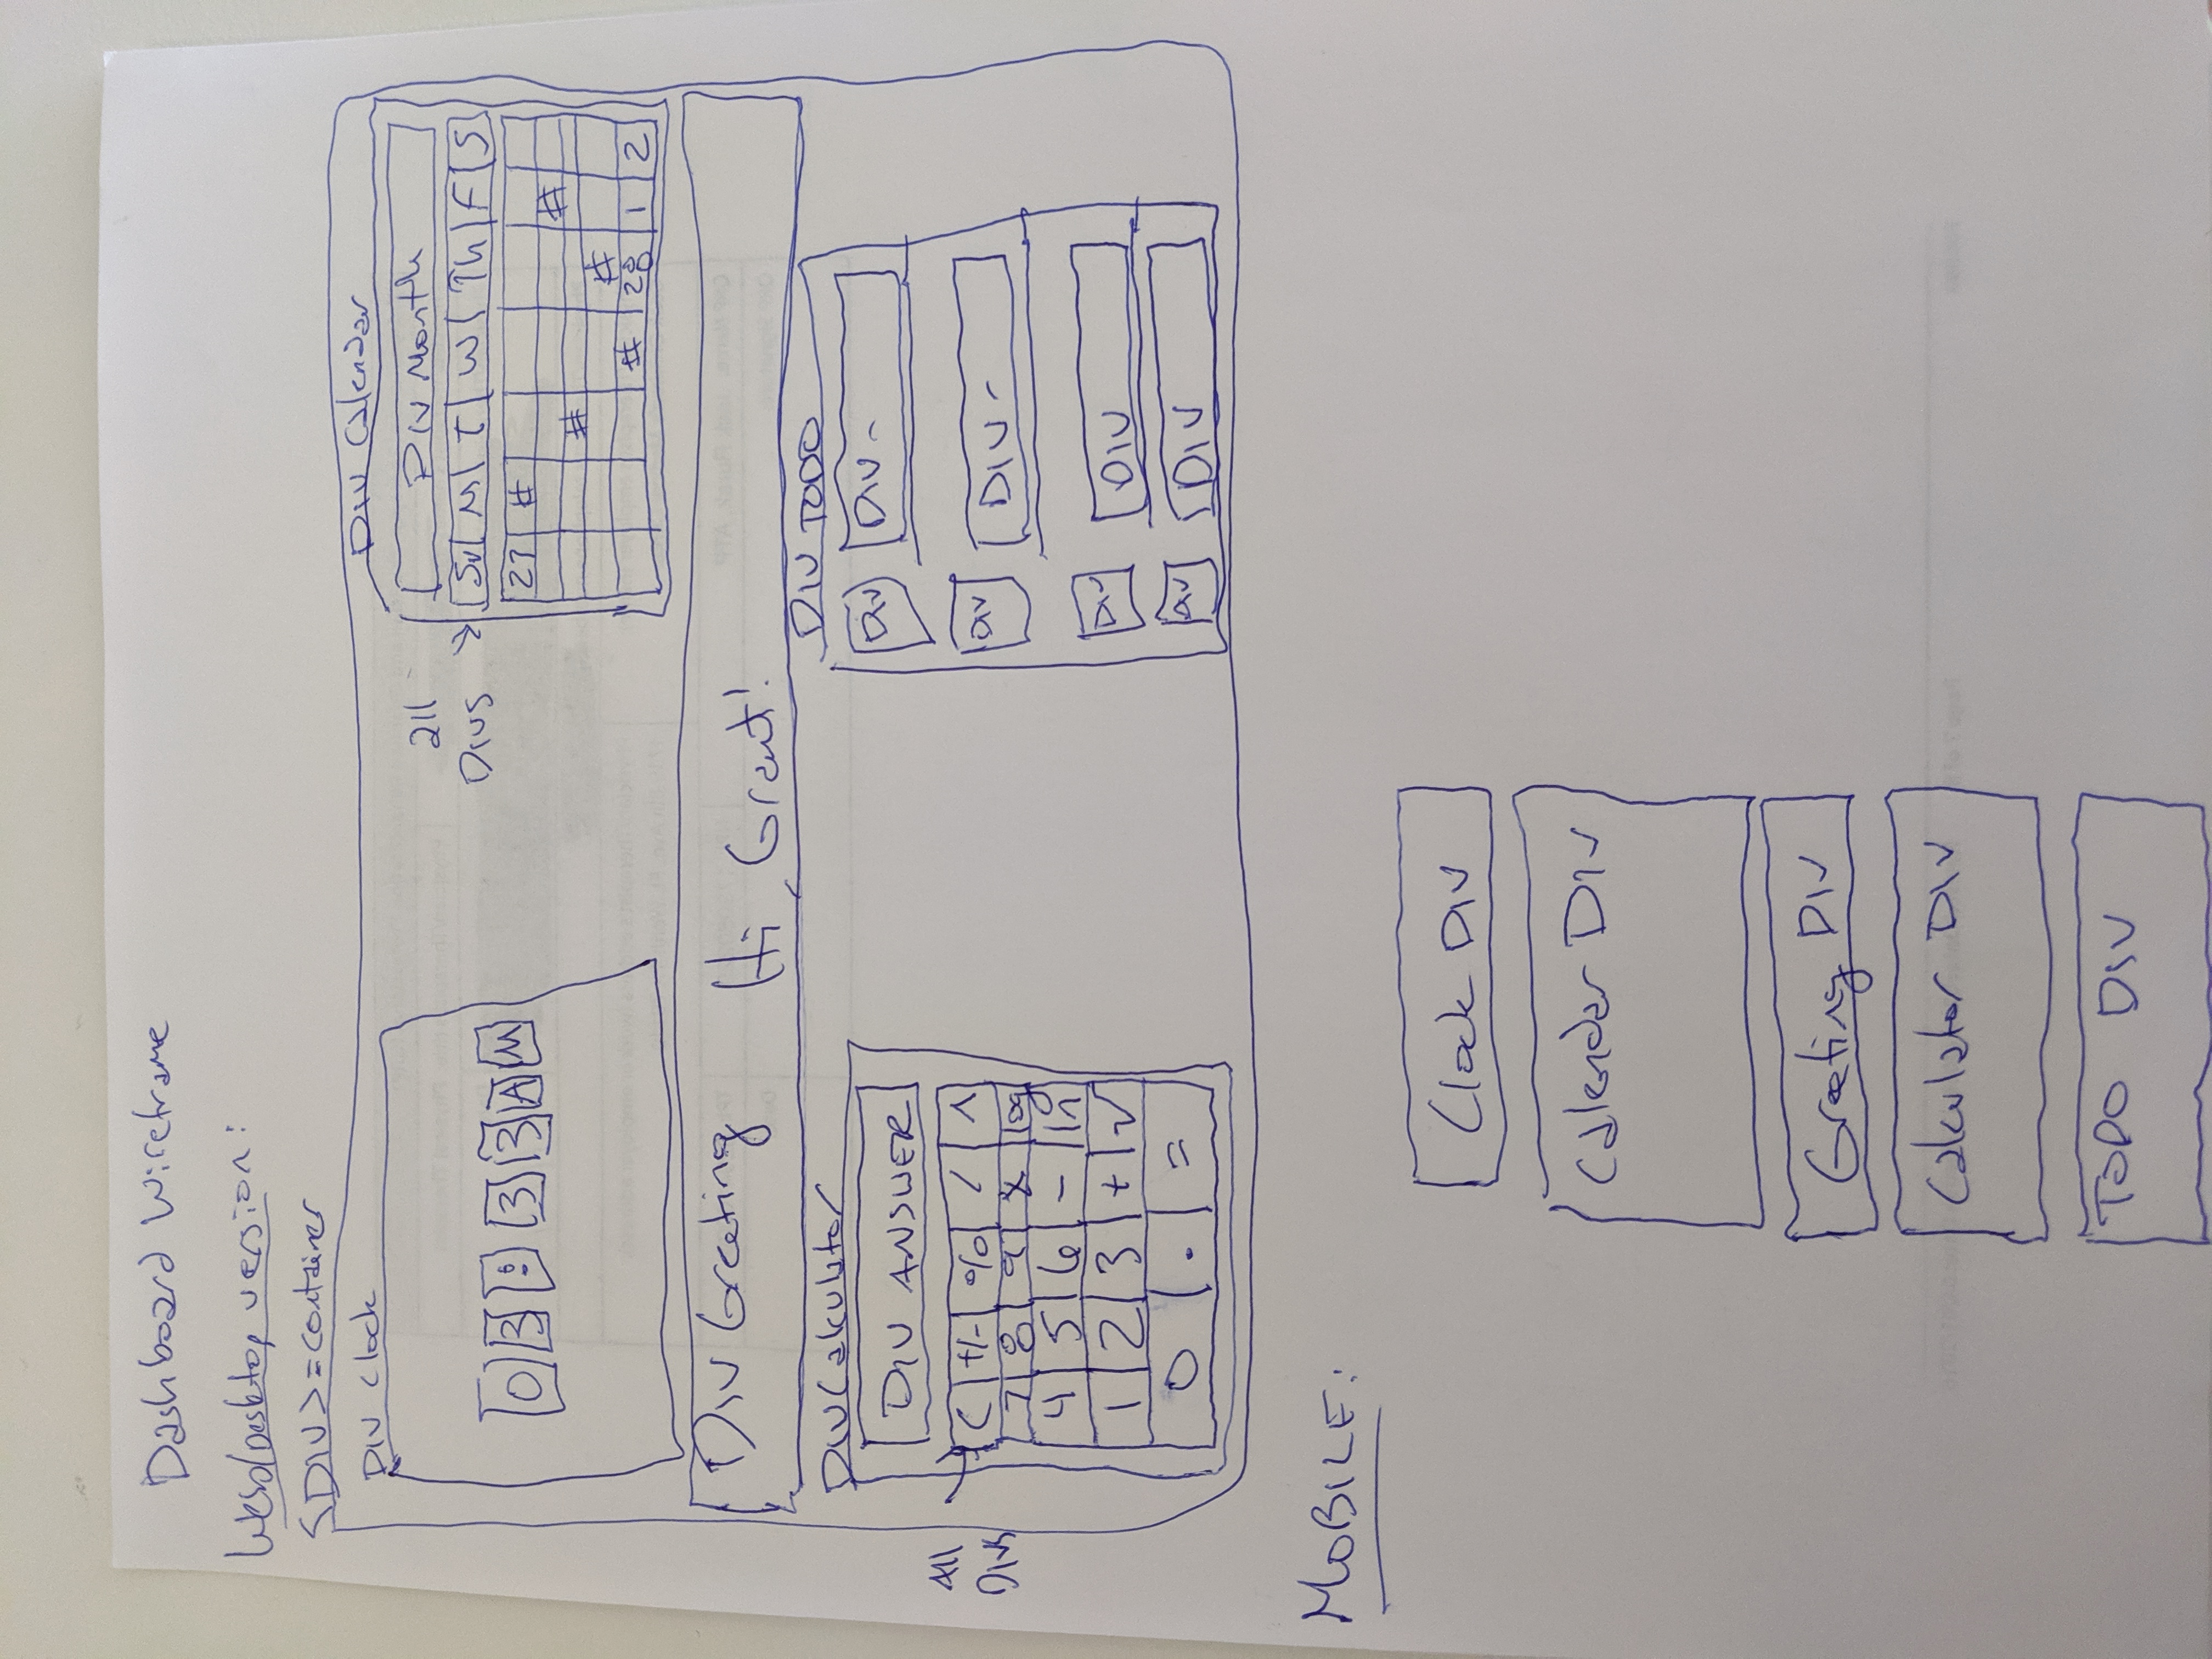 Dashboard Wireframe
Web/Desktop version:
<DIV> = container
Div Clock
0 3 : 3 3 A M
Div Calendar
all Divs
Div Month
Su M T W Th F S
27 #
#
#
#
# 28 1 2
Div Greeting Hi, Grant!
Div Calculator
All Divs
DIV ANSWER
C +/- % / ^
7 8 9 x log
4 5 6 - ln
1 2 3 + √
0 . =
DIV TODO
Div DIV -
Div DIV -
Div DIV
Div DIV
MOBILE:
Clock DIV
Calendar DIV
Greeting DIV
Calculator DIV
TODO DIV